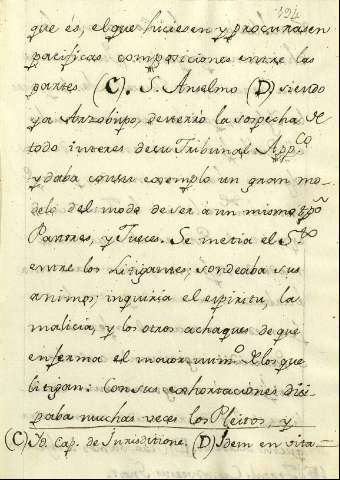 124
que és, el que hiciesen y procurasen
pacificas composiciones entre las
partes. (C). S. Anselmo (D) siendo
ya Arzobispo, desterró la sospecha de
todo interes de su Tribunal App.co
y daba con su exemplo un gran mo-
delo del modo de ser à un mismo tpõ
Pastores, y Jueces. Se metia el S.to
entre los Litigantes; sondeaba sus
animos; inquiria el espiritu, la
malicia, y los otros achaques de que
enferma el maior num.o de los que
litigan: Con sus exhortaciones disi-
paba muchas veces los Pleitos, y
(C) Id. Cap. de Jurisditione. (D) Idem en vita